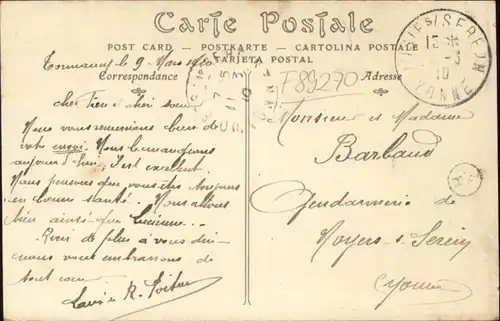 Carte Postale
POST CARD — POSTKARTE — CARTOLINA POSTALE
TARJETA POSTAL
Correspondance
Adresse
9 Mars 1910
F89270
cher frère & chère soeur
Nous vous remercions bien de
votre envoi. Nous le mangeons
aujourd'hui, il est excellent.
Nous pensons que vous êtes toujours
en bonne santé. Nous allons
bien ainsi que Lucienne.
Rien de plus à vous dire
nous vous embrassons de
tout coeur
Monsieur et Madame
Barbaud
Gendarmerie de
Noyers s. Serein
Yonne
S/SEREIN
YONNE